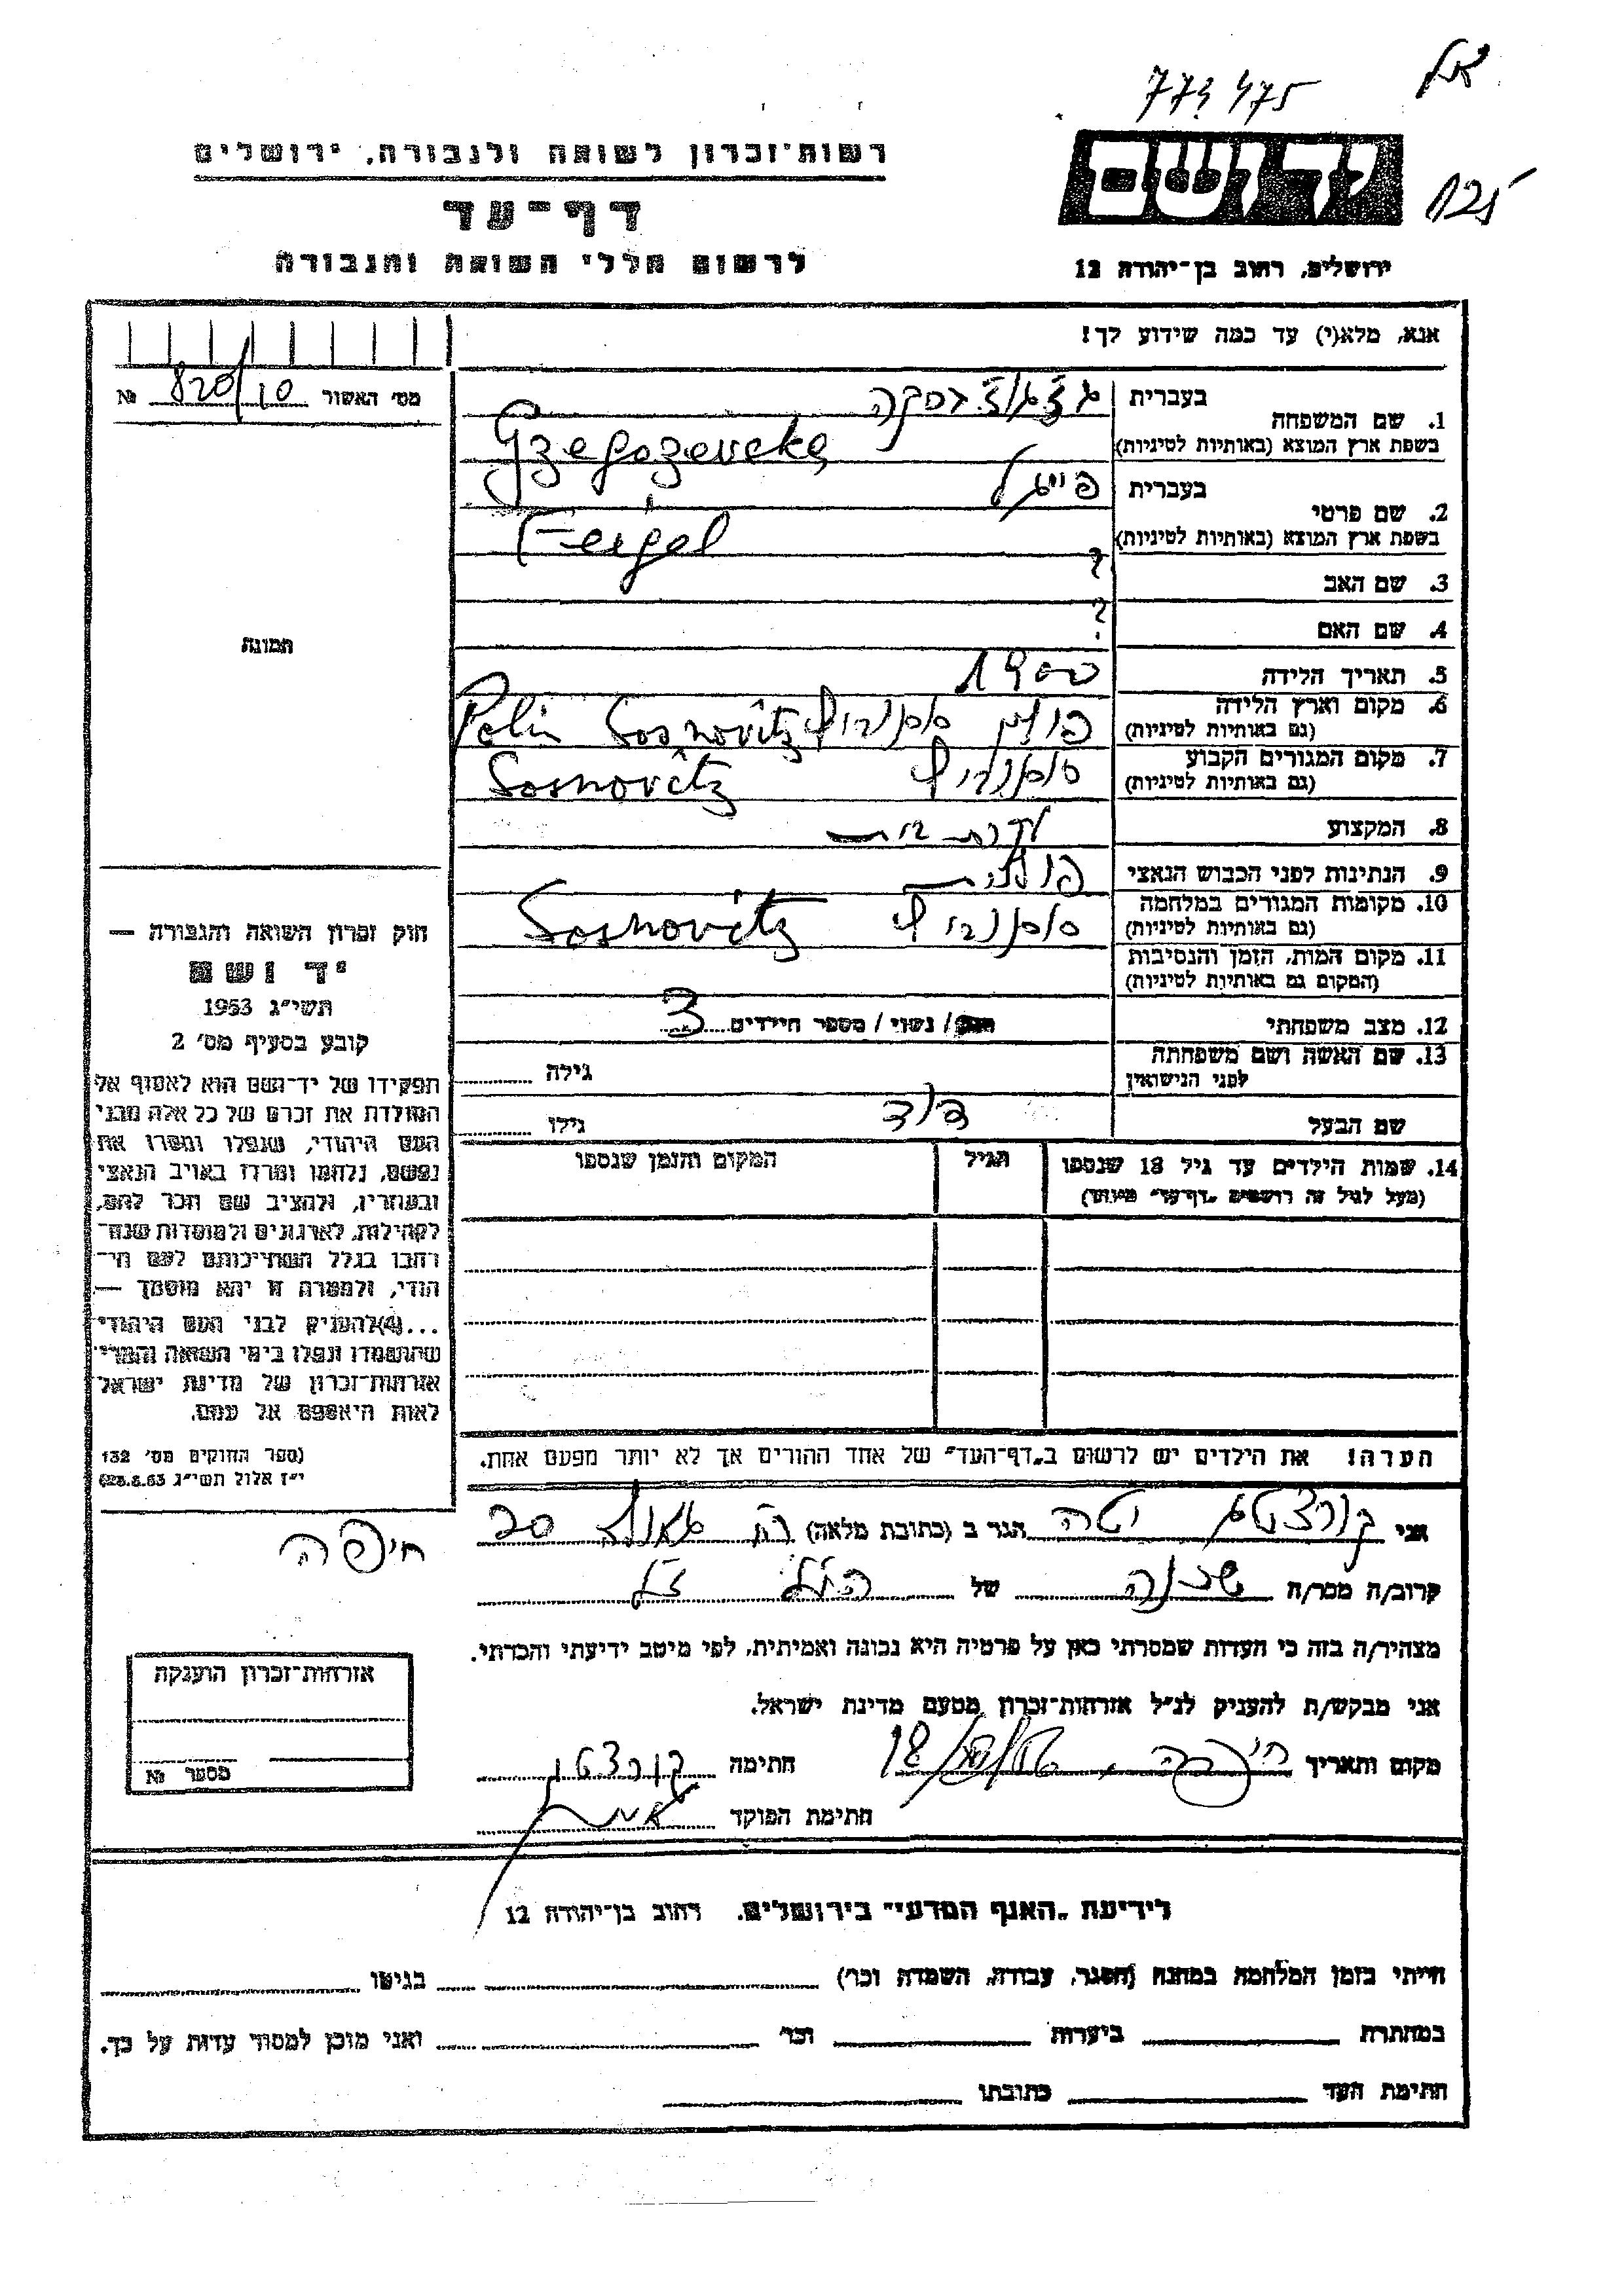 773 475
125
יד ושם
ירושלים, רחוב בן־יהודה 12
רשות־זכרון לשואה ולגבורה, ירושלים
דף־עד
לרשום חללי השואה והגבורה
אנא, מלא(י) עד כמה שידוע לך!
מס׳ האשור 820/10 №
1. שם המשפחה בעברית
בשפת ארץ המוצא (באותיות לטיניות)
2. שם פרטי בעברית פייגל
בשפת ארץ המוצא (באותיות לטיניות) Feigel
3. שם האב ?
4. שם האם ?
5. תאריך הלידה 1900
6. מקום וארץ הלידה פולין סוסנוביץ Polin Sosnovitz
(גם באותיות לטיניות)
7. מקום המגורים הקבוע סוסנוביץ Sosnovitz
(גם באותיות לטיניות)
8. המקצוע עקרת בית
9. הנתינות לפני הכבוש הנאצי פולנית
10. מקומות המגורים במלחמה סוסנוביץ Sosnovitz
(גם באותיות לטיניות)
11. מקום המות, הזמן והנסיבות
(המקום גם באותיות לטיניות)
12. מצב משפחתי / נשוי / מספר הילדים 3
13. שם האשה ושם משפחתה גילה
לפני הנישואין
שם הבעל דוד גילו
14. שמות הילדים עד גיל 18 שנספו הגיל המקום והזמן שנספו
(מעל לגיל זה רושמים „דף־עד" מיוחד)
הערה! את הילדים יש לרשום ב„דף־העד" של אחד ההורים אך לא יותר מפעם אחת.
תמונה
חוק זכרון השואה והגבורה —
יד ושם
תשי״ג 1953
קובע בסעיף מס׳ 2
תפקידו של יד־ושם הוא לאסוף אל
המולדת את זכרם של כל אלה מבני
העם היהודי, שנפלו ומסרו את
נפשם, נלחמו ומרדו באויב הנאצי
ובעוזריו, ולהציב שם וזכר להם,
לקהילות, לארגונים ולמוסדות שנח־
רבו בגלל השתייכותם לעם הי־
הודי, ולמטרה זו יהא מוסמך —
...(4) להעניק לבני העם היהודי
שהושמדו ונפלו בימי השואה והמרי
אזרחות־זכרון של מדינת ישראל
לאות היאספם אל עמם.
(ספר החוקים מס׳ 132
י״ז אלול תשי״ג 28.8.53)
אני יטה הגר ב (כתובת מלאה)
חיפה
קרוב/ה מכר/ה שכנה של הנ״ל ז״ל
מצהיר/ה בזה כי העדות שמסרתי כאן על פרטיה היא נכונה ואמיתית, לפי מיטב ידיעתי והכרתי.
אני מבקש/ת להעניק לנ״ל אזרחות־זכרון מטעם מדינת ישראל.
מקום ותאריך חיפה, חתימה
חתימת הפוקד
אזרחות־זכרון הוענקה
מספר №
לידיעת „האגף המדעי" בירושלים, רחוב בן־יהודה 12
הייתי בזמן המלחמה במחנה (הסגר, עבודה, השמדה וכו׳) בגיטו
במחתרת ביערות וכו׳ ואני מוכן למסור עדות על כך.
חתימת העד כתובתו